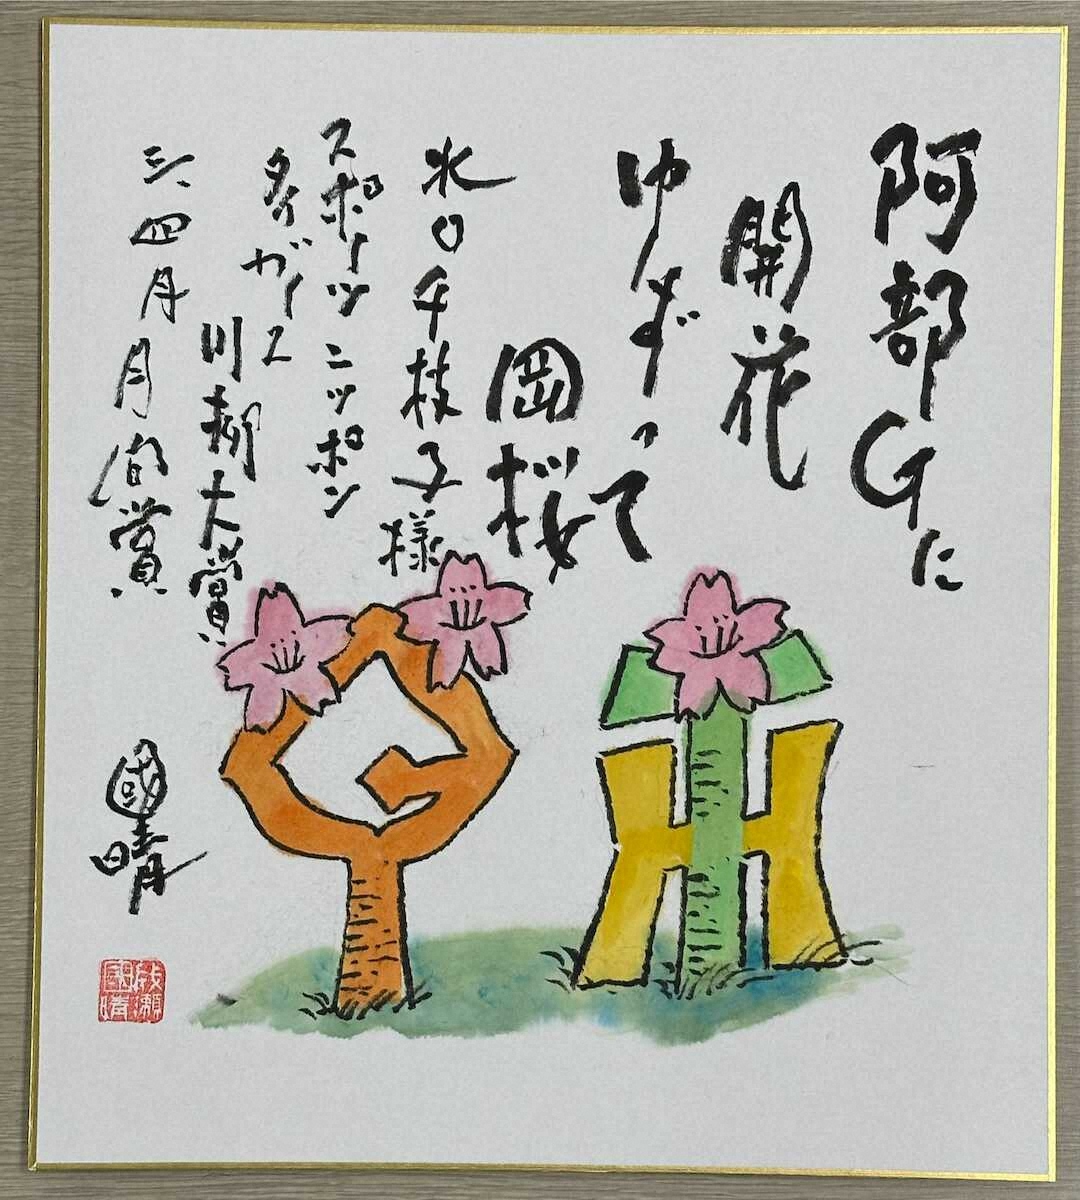 阿部Gに
開花
ゆずって
岡桜
水口千枝子様
スポーツニッポン
タイガース
川柳大賞
三、四月月間賞
國晴